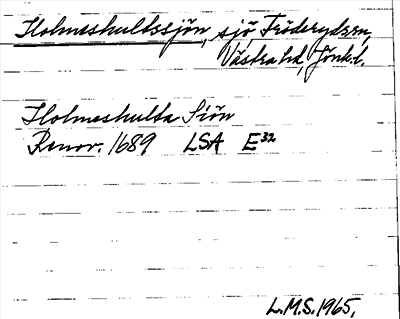 Holmeshultssjön, sjö, Fröderyds sn,
Västra hd, Jönk. l.
Holmeshulta Siön
Renov. 1689 LSA E³²
L.M.S. 1965.